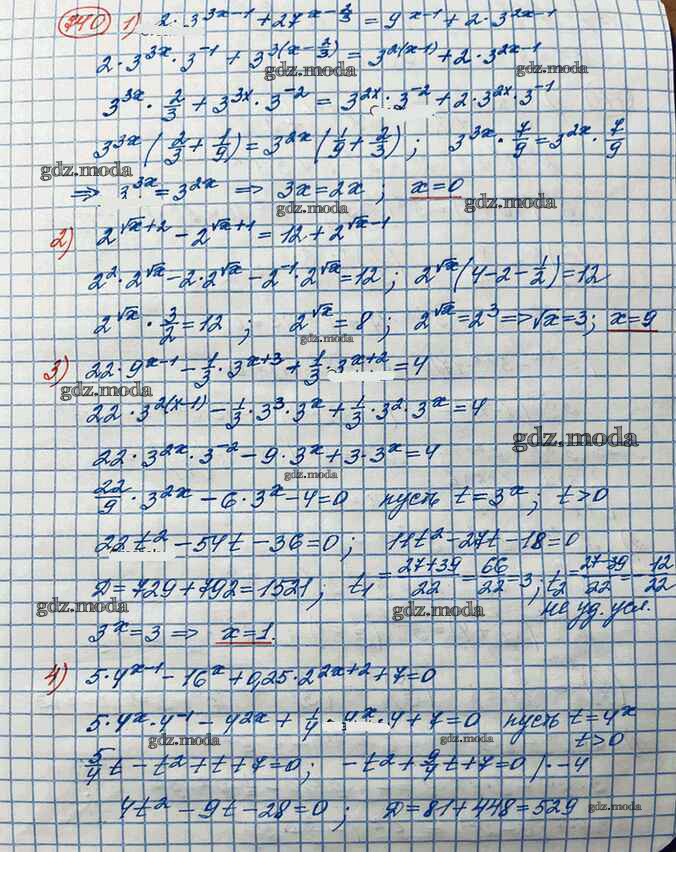 740 1) 2·3^(3x-1) + 27^(x-2/3) = 9^(x-1) + 2·3^(2x-1)
2·3^(3x)·3^(-1) + 3^(3(x-2/3)) = 3^(2(x-1)) + 2·3^(2x-1)
gdz.moda gdz.moda
3^(3x)·2/3 + 3^(3x)·3^(-2) = 3^(2x)·3^(-2) + 2·3^(2x)·3^(-1)
3^(3x)(2/3 + 1/9) = 3^(2x)(1/9 + 2/3); 3^(3x)·7/9 = 3^(2x)·7/9
gdz.moda
⇒ 3^(3x) = 3^(2x) ⇒ 3x = 2x; x=0
gdz.moda
2) 2^(√x+2) - 2^(√x+1) = 12 + 2^(√x-1)
2^2·2^(√x) - 2·2^(√x) - 2^(-1)·2^(√x) = 12; 2^(√x)(4-2-1/2) = 12
2^(√x)·3/2 = 12; 2^(√x) = 8; 2^(√x) = 2^3 ⇒ √x = 3; x=9
gdz.moda
3) 22·9^(x-1) - 1/3·3^(x+3) + 1/3·3^(x+2) = 4
gdz.moda
22·3^(2(x-1)) - 1/3·3^3·3^x + 1/3·3^2·3^x = 4
gdz.moda
22·3^(2x)·3^(-2) - 9·3^x + 3·3^x = 4
gdz.moda
22/9·3^(2x) - 6·3^x - 4 = 0 пусть t = 3^x; t>0
22t^2 - 54t - 36 = 0; 11t^2 - 27t - 18 = 0
D = 729 + 792 = 1521; t1 = (27+39)/22 = 66/22 = 3; t2 = (27-39)/22 = -12/22
gdz.moda gdz.moda не уд. усл.
3^x = 3 ⇒ x=1.
4) 5·4^(x-1) - 16^x + 0,25·2^(2x+2) + 7 = 0
5·4^x·4^(-1) - 4^(2x) + 1/4·4^x·4 + 7 = 0 пусть t = 4^x
gdz.moda gdz.moda t>0
5/4t - t^2 + t + 7 = 0; -t^2 + 9/4t + 7 = 0 |·-4
4t^2 - 9t - 28 = 0; D = 81 + 448 = 529 gdz.moda